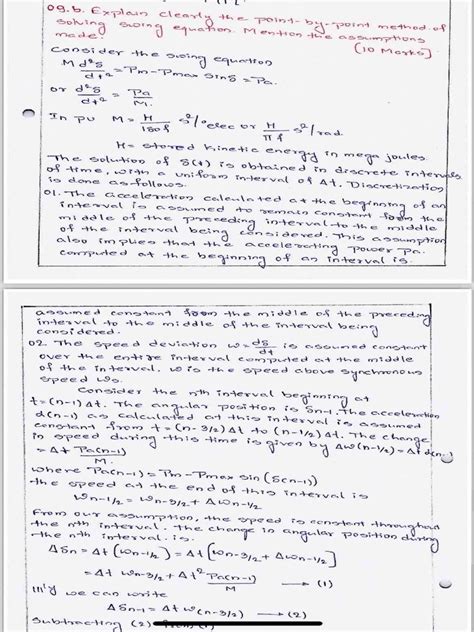 09.b. Explain clearly the point-by-point method of
solving swing equation. Mention the assumptions
made. (10 Marks)
Consider the swing equation
M d²δ/dt² = Pm - Pmax sinδ = Pa.
or d²δ/dt² = Pa/M.
In pu M = H/180f s²/°elec or H/πf s²/rad.
H = stored kinetic energy in mega joules.
The solution of δ(t) is obtained in discrete intervals
of time, with a uniform interval of Δt. Discretization
is done as follows.
01. The acceleration calculated at the beginning of an
interval is assumed to remain constant from the
middle of the preceding interval to the middle
of the interval being considered. This assumption
also implies that the accelerating power Pa.
computed at the beginning of an interval is
assumed constant from the middle of the preceding
interval to the middle of the interval being
considered.
02. The speed deviation ω = dδ/dt is assumed constant
over the entire interval computed at the middle
of the interval. ω is the speed above synchronous
speed ωs.
Consider the nth interval beginning at
t = (n-1)Δt. The angular position is δn-1. The acceleration
α(n-1) as calculated at this interval is assumed
constant from t = (n-3/2)Δt to (n-1/2)Δt. The change
in speed during this time is given by Δω(n-1/2) = Δt α(n-1)
= Δt Pa(n-1)/M
where Pa(n-1) = Pm - Pmax sin(δ(n-1))
the speed at the end of this interval is
ωn-1/2 = ωn-3/2 + Δωn-1/2
From our assumption, the speed is constant throughout
the nth interval. The change in angular position during
the nth interval. is.
Δδn = Δt (ωn-1/2) = Δt [ωn-3/2 + Δωn-1/2]
= Δt ωn-3/2 + Δt² Pa(n-1)/M → (1)
lll'y we can write
Δδn-1 = Δt ω(n-3/2) → (2)
Subtracting (2) from (1)